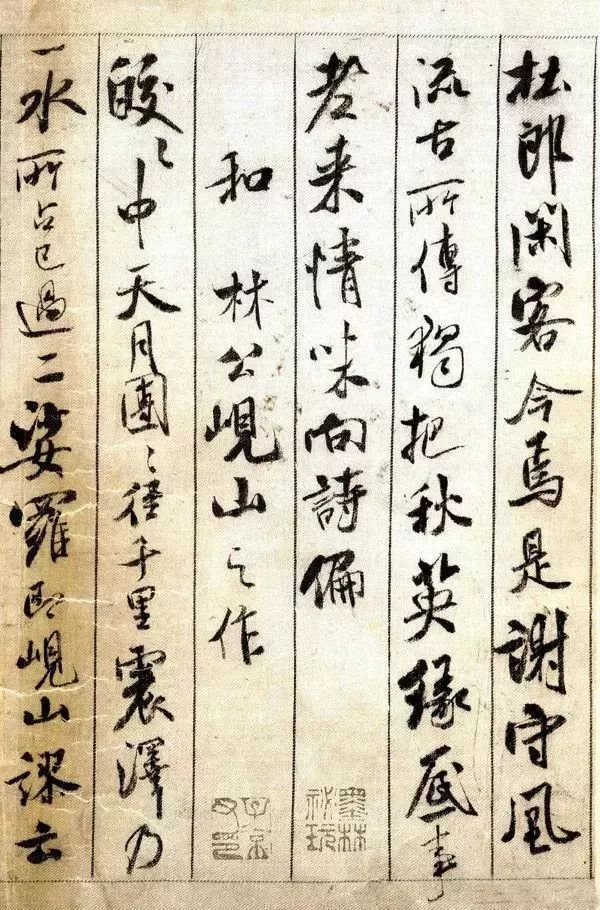 杜郎閑客今焉是謝守風
流古所傳獨把秋英緣底事
老来情味向詩偏
墨林秘玩
和 林公峴山之作
子京父印
皎〻中天月團〻径千里震澤乃
一水所占已過二娑羅即峴山謬云